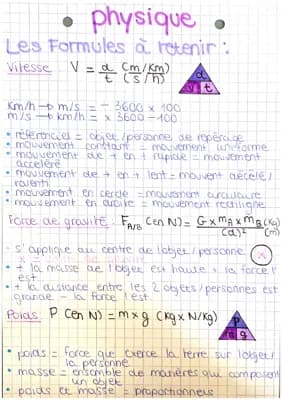 • physique •
Les Formules à retenir :
Vitesse V = d/t (m/km) (s/h)
d
v t
km/h → m/s = ÷ 3600 × 100
m/s → km/h = × 3600 ÷ 100
• référenciel = objet/personne de repérage
• mouvement constant = mouvement uniforme
• mouvement de + en + rapide = mouvement
accéléré
• mouvement de + en + lent = mouvement décéléré/
ralenti
• mouvement en cercle = mouvement circulaire
• mouvement en droite = mouvement rectiligne
Force de gravité : F A/B (en N) = G × mA × mB (kg) / (d)² (m)
• s'applique au centre de l'objet/personne
x
• + la masse de l'objet est haute + la force l'
est
• + la distance entre les 2 objets/personnes est
grande - la force l'est
Poids P (en N) = m × g (kg × N/kg)
P
m g
• poids = force que exerce la terre sur l'objet/
la personne
• masse = ensemble de matières qui composent
un objet
• poids et masse = proportionnels